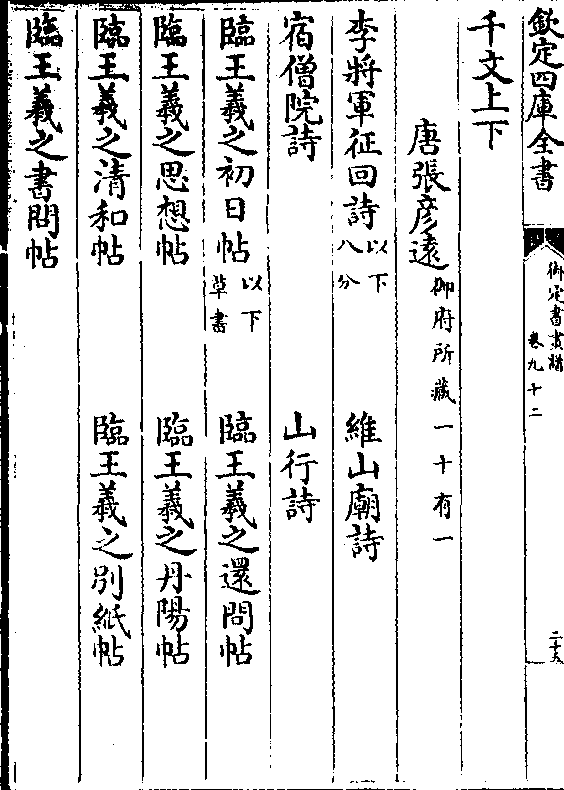 欽定四庫全書
御定書畫譜
卷九十二
二十六
千文上下
唐張彥遠御府所藏一十有一
李將軍征回詩以下八分 維山廟詩
宿僧院詩 山行詩
臨王羲之初日帖以下草書 臨王羲之還問帖
臨王羲之思想帖 臨王羲之丹陽帖
臨王羲之清和帖 臨王羲之別紙帖
臨王羲之書問帖